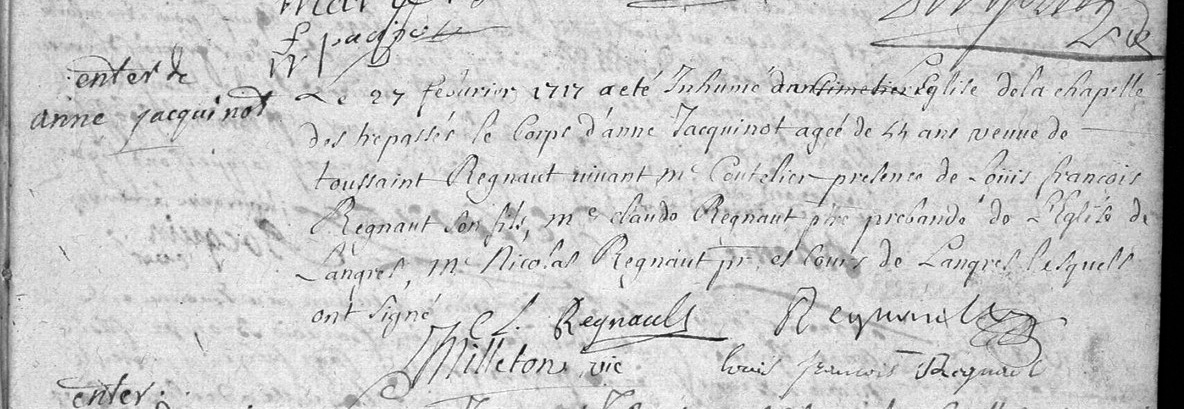 enter de
anne jacquinot
Le 27 fevurier 1717 a eté Inhumé dans Eglise de la chapelle
des trepassés le Corps d'anne Jacquinot ageé de 54 ans veuve de
toussaint Regnaut vivant me Coutelier presence de Loüis francois
Regnaut son fils, me claude Regnaut ptre prebandé de L'Eglise de
Langres, me Nicolas Regnaut pr es Cours de Langres lesquels
ont signé
C L. Regnault Regnault
Milleton vic Louis francois Regnault
enter